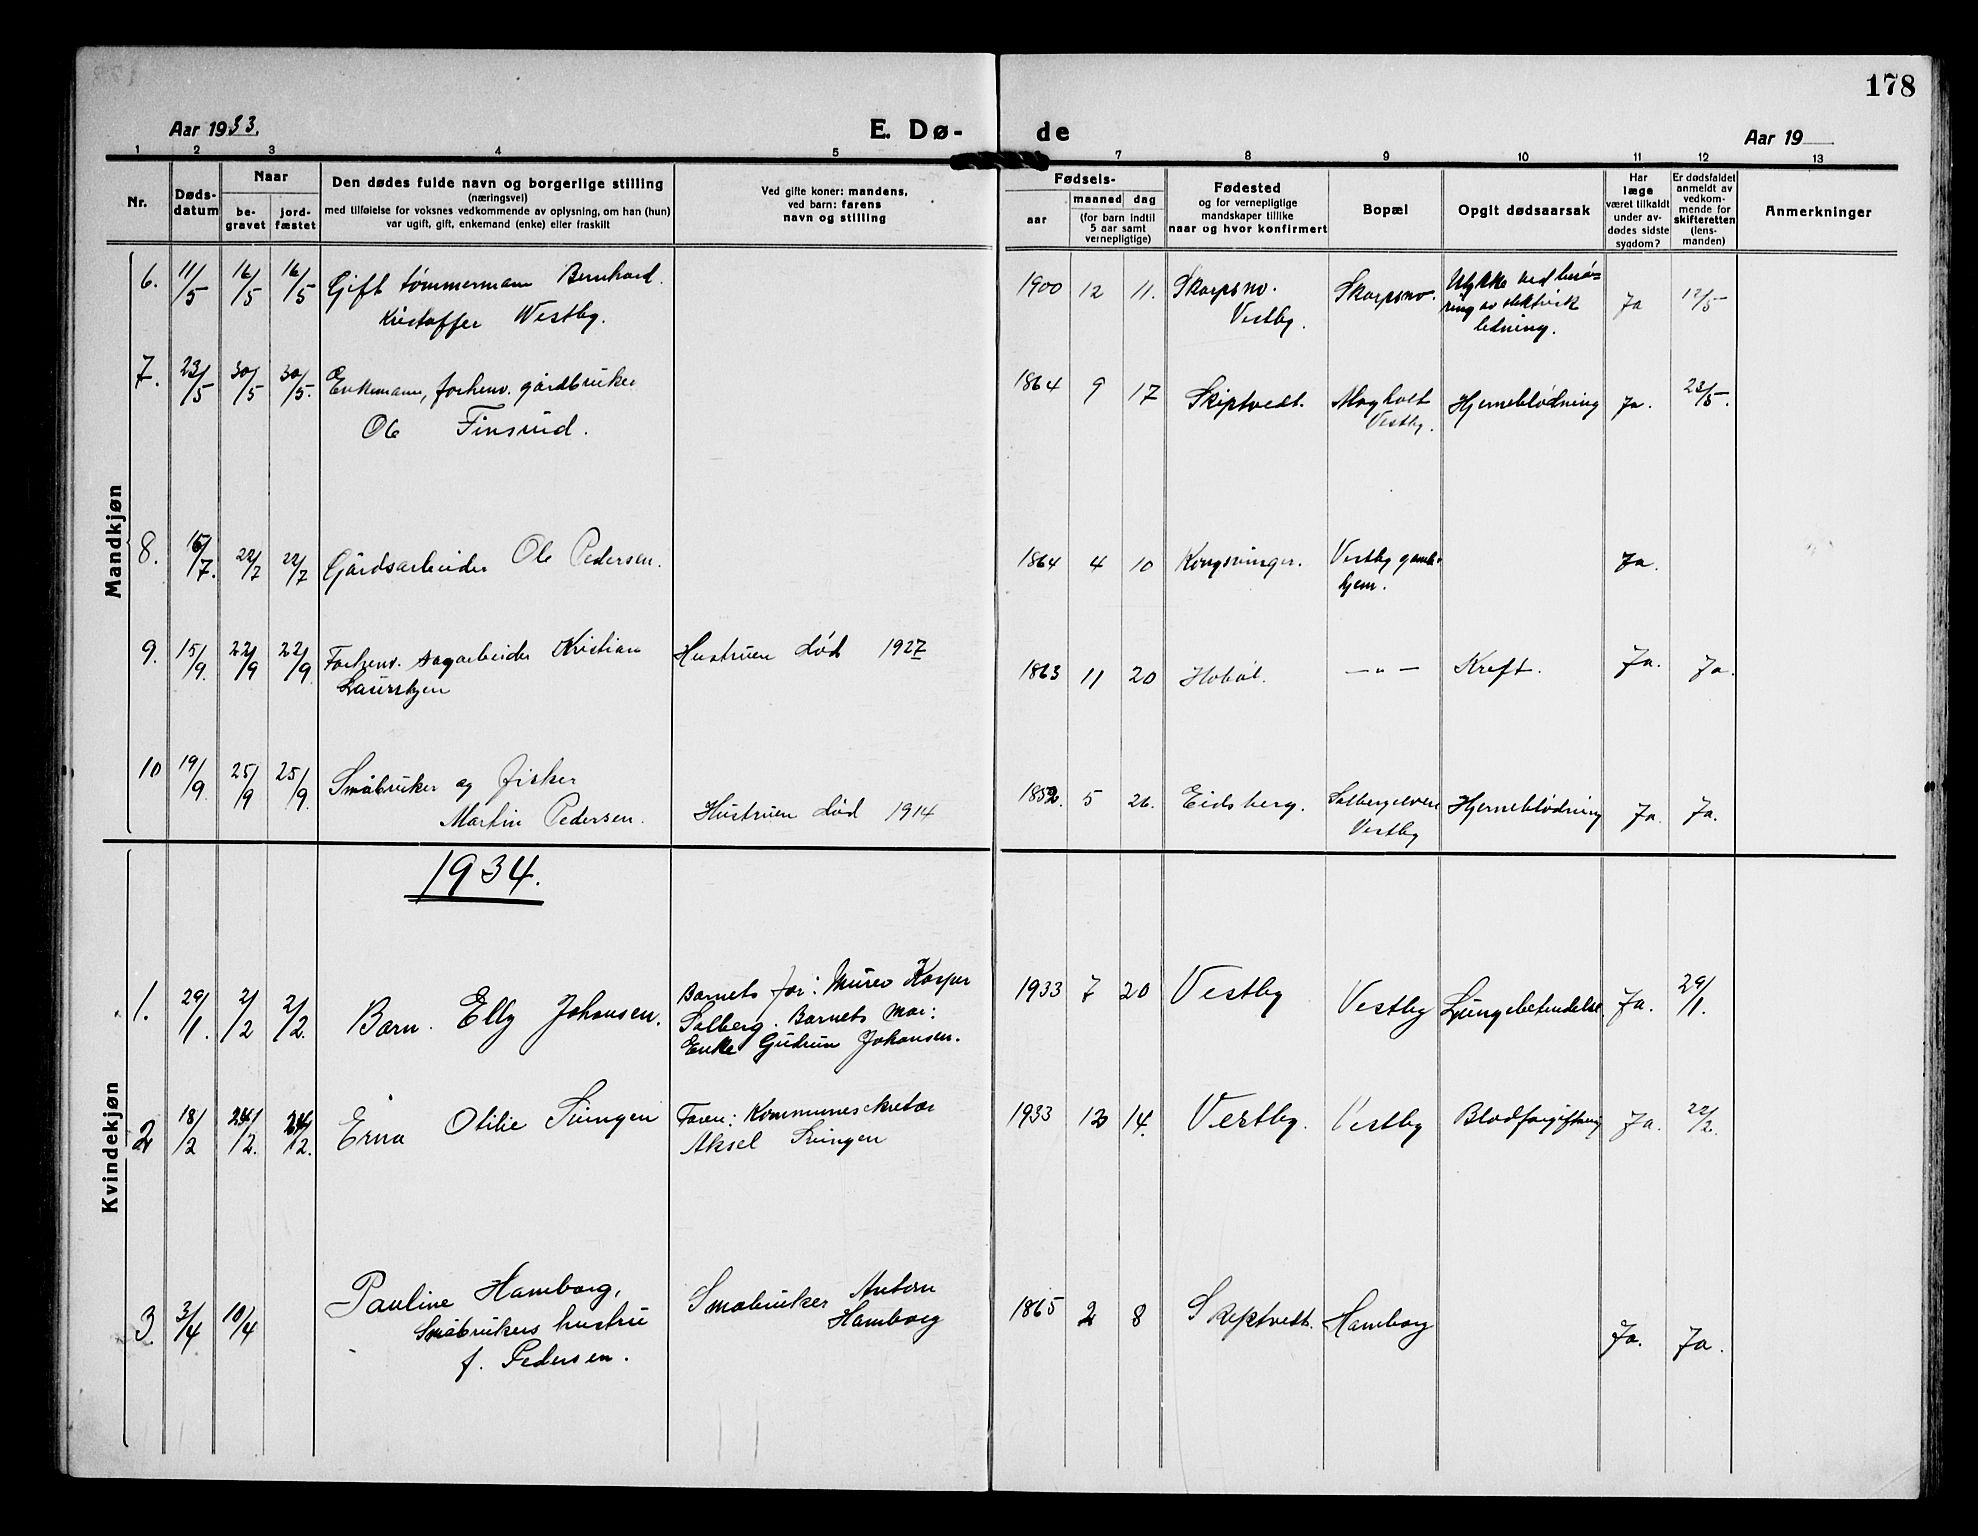 178
Aar 1933.
E. Dø-
de
Aar 19
1 2 3 4 5 7 8 9 10 11 12 13
Nr.
Døds-
datum
Naar
be-
gravet
jord-
fæstet
Den dødes fulde navn og borgerlige stilling
(næringsvei)
med tilføielse for voksnes vedkommende av oplysning, om han (hun)
var ugift, gift, enkemand (enke) eller fraskilt
Ved gifte koner: mandens,
ved barn: farens
navn og stilling
Fødsels-
aar
maaned dag
(for barn indtil
5 aar samt
vernepligtige)
Fødested
og for vernepligtige
mandskaper tillike
naar og hvor konfirmert
Bopæl
Opgit dødsaarsak
Har
læge
været tilkaldt
under av-
dødes sidste
sygdom?
Er dødsfaldet
anmeldt av
vedkom-
mende for
skifteretten
(lens-
manden)
Anmerkninger
Mandkjøn
6. 11/5 16/5 16/5 Gift tømmermann Bernhard
Kristoffer Westby.
1900 12 11. Skarpsno.
Vestby.
Skarpsno.
Ulykke ved berø-
ring av elektrisk
ledning.
Ja 12/5
7. 23/5 30/5 30/5. Enkemann, forhenv. gårdbruker
Ole Finsrud.
1864 9 17 Skiptvedt.
Vestby.
Hjerneblødning Ja. 23/5.
8. 15/7. 22/7 22/7 Gårdsarbeider Ole Pedersen.
1864 4 10 Kongsvinger. Vestby gamle-
hjem.
Ja.
9. 15/9. 22/9 22/9. Forhenv. sagarbeider Kristian
Laurskjen
Hustruen død 1927
1863 11 20 Hobøl. — „ — Kreft. Ja. Ja.
10 19/9. 25/9 25/9. Småbruker og fisker
Martin Pedersen.
Hustruen død 1914
1852. 5 26. Eidsberg. Solbergelven
Vestby
Hjerneblødning Ja. Ja.
1934.
Kvindekjøn
1. 29/1. 2/2 2/2. Barn. Elly Johansen.
Barnets far: Murer Kasper
Solberg. Barnets mor:
Enke Gudrun Johansen.
1933 7 20 Vestby Vestby Lungebetendelse Ja. 29/1.
2 18/2 24/2. 24/2. Erna Otilie Sningen
Faren: Kommunesekretær
Aksel Sningen
1933 12 14. Vestby. Vestby Blodforgiftning Ja. 22/2.
3. 3/4 10/4 Pauline Hamborg,
Småbrukers hustru
f. Pedersen.
Småbruker Anton
Hamborg
1865 2 8 Skiptvedt. Hamborg Ja. Ja.